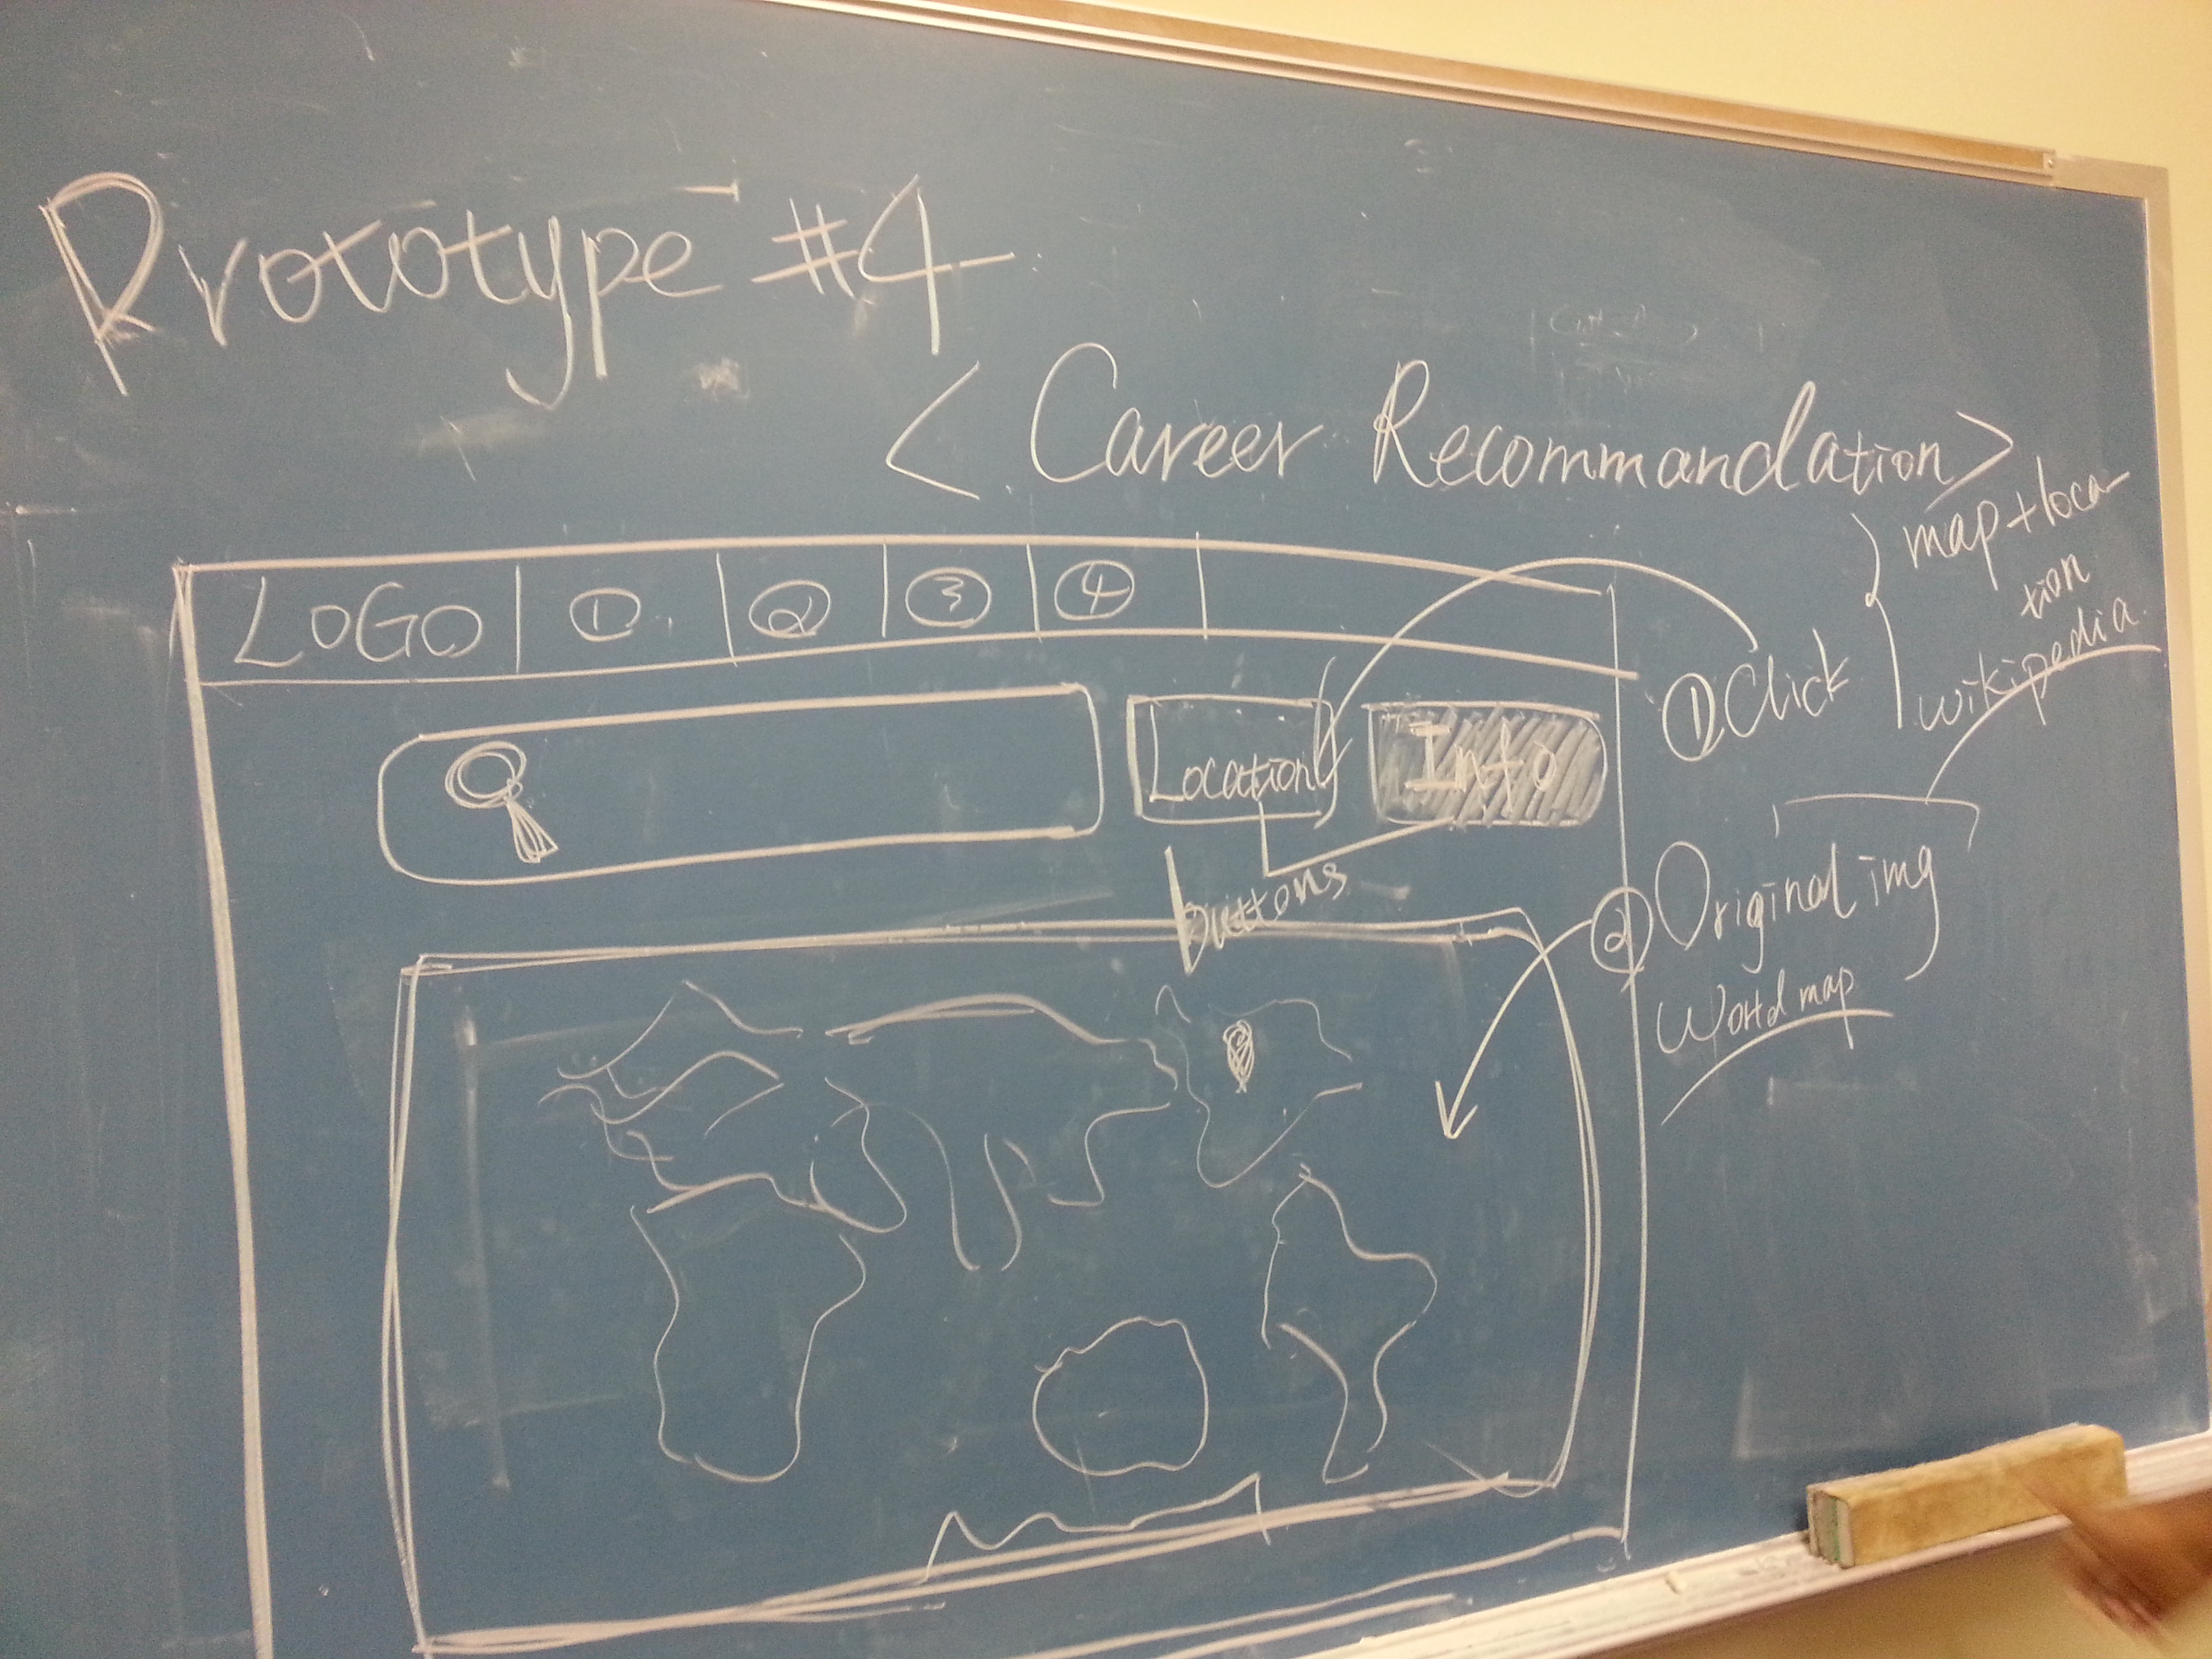 Prototype #4
< Career Recommandation >
LOGO ① ② ③ ④
Location Info
buttons
① Click
map + loca
tion
wikipedia.
② Original img
World map